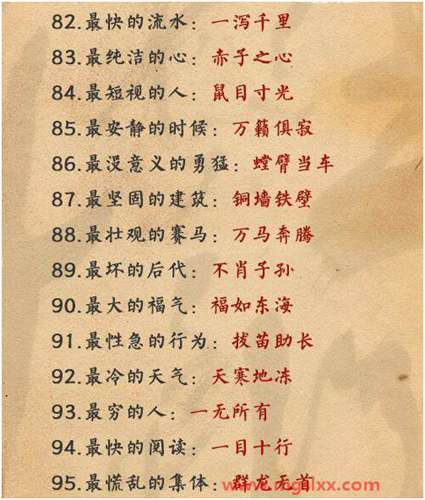 82.最快的流水：一泻千里
83.最纯洁的心：赤子之心
84.最短视的人：鼠目寸光
85.最安静的时候：万籁俱寂
86.最没意义的勇猛：螳臂当车
87.最坚固的建筑：铜墙铁壁
88.最壮观的赛马：万马奔腾
89.最坏的后代：不肖子孙
90.最大的福气：福如东海
91.最性急的行为：拔苗助长
92.最冷的天气：天寒地冻
93.最穷的人：一无所有
94.最快的阅读：一目十行
95.最慌乱的集体：群龙无首